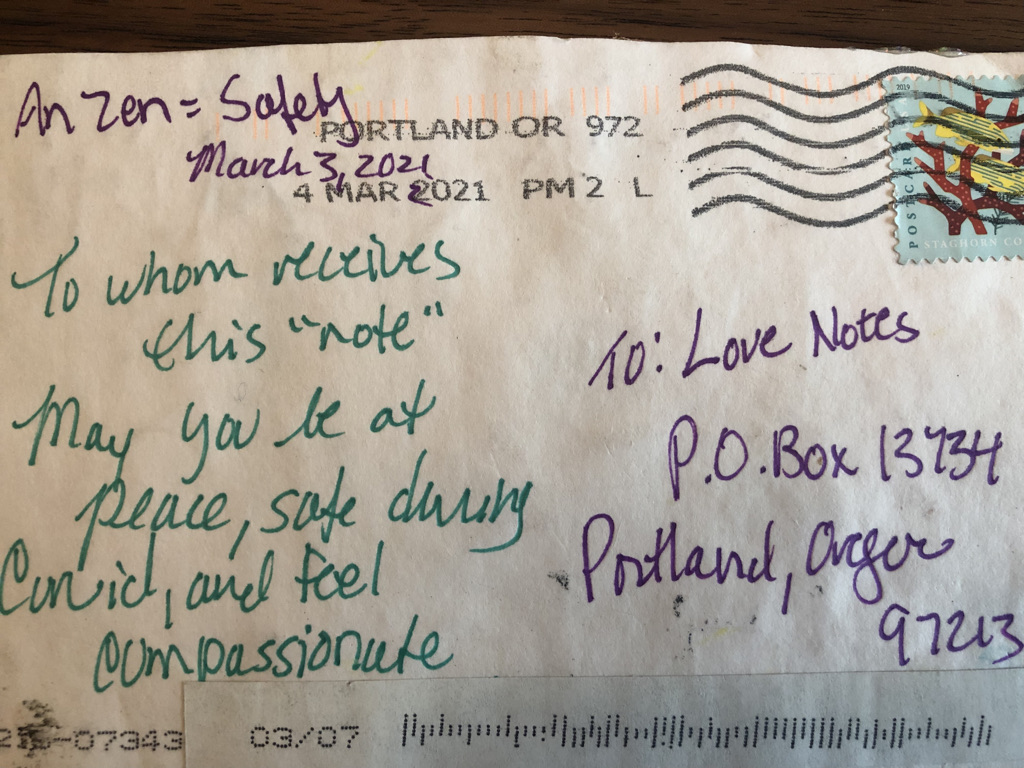 An Zen = Safety
PORTLAND OR 972
March 3, 2021
4 MAR 2021 PM 2 L
2019
POSTCARD
STAGHORN CO
To whom receives
this "note"
May you be at
peace, safe during
Convid, and feel
compassionate
To: Love Notes
P.O. Box 13734
Portland, Oregon
97213
-07343
03/07